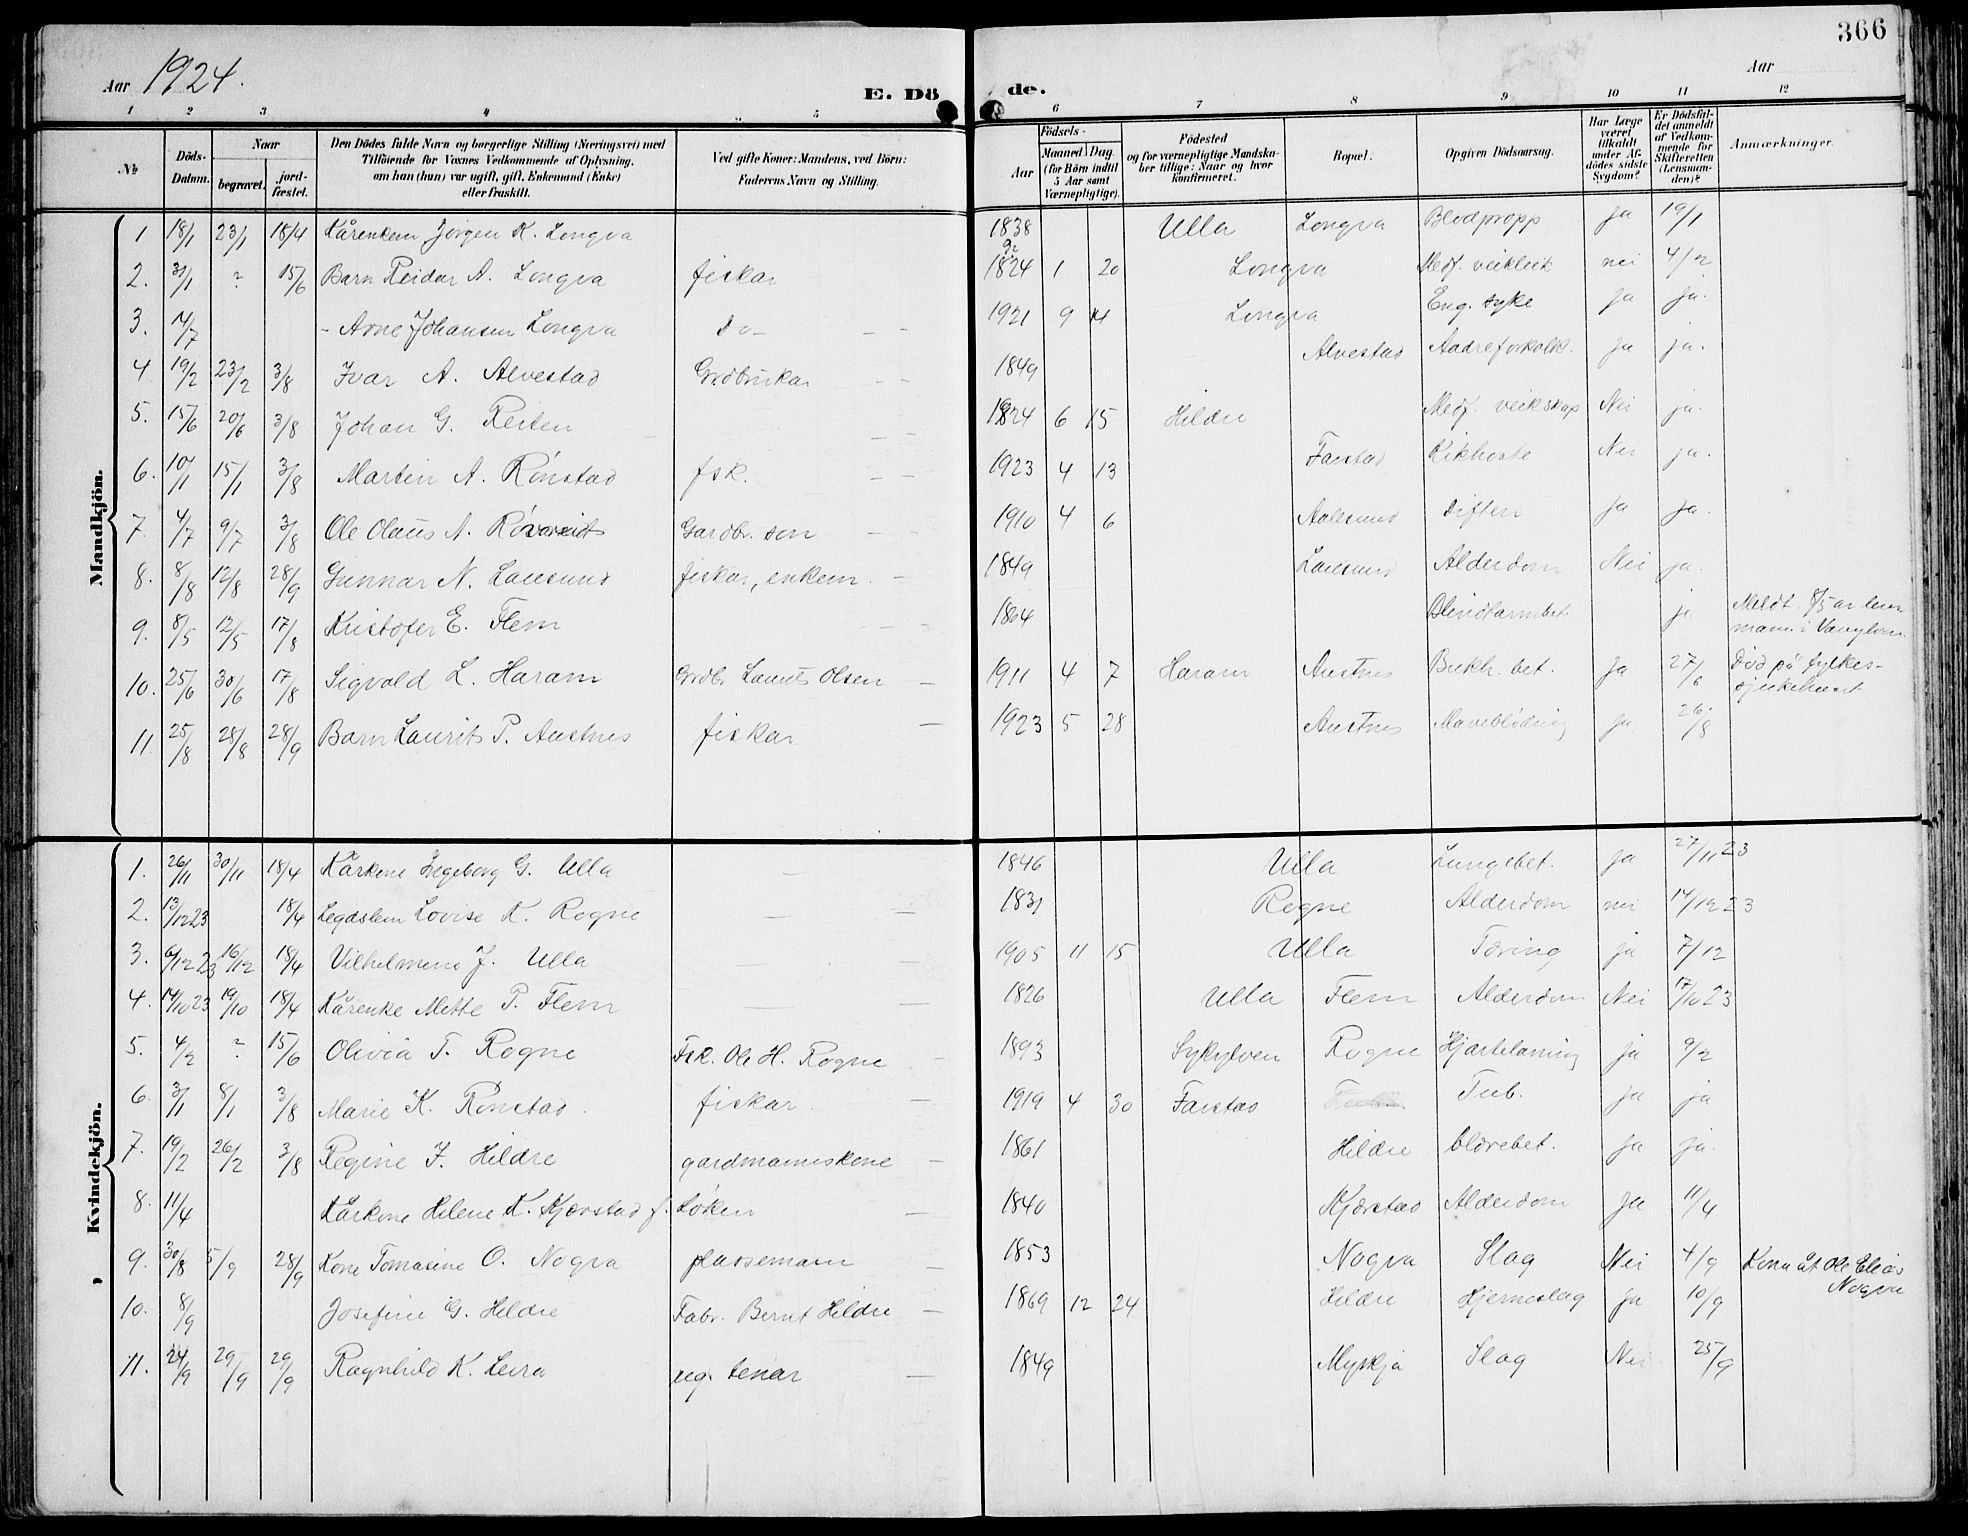 366
Aar 1924.
E. Dö
de.
Aar
1 2 3 4 5 6 7 8 9 10 11 12
№
Döds-Datum.
Naar
begravet.
jord-fæstet.
Den Dödes fulde Navn og borgerlige Stilling (Næringsvei) med
Tilföiende for Voxnes Vedkommende af Oplysning,
om han (hun) var ugift, gift, Enkemand (Enke)
eller fraskilt.
Ved gifte Koner: Mandens, ved Börn:
Faderens Navn og Stilling.
Födsels-
Aar
Maaned Dag.
(for Börn indtil 5 Aar samt Værnepligtige).
Födested
og for værnepligtige Mandska-
ber tillige: Naar og hvor
konfirmeret.
Bopæl.
Opgiven Dödsaarsag.
Har Læge været tilkaldt under Af-dödes sidste Sygdom?
Er Dödsfal-det anmeldt af Vedkom-mende for Skifteretten (Lensman-den)?
Anmærkninger.
Mandkjön.
1 18/1 23/1 18/4 Kårenkem Jørgen K. Longva 1838 Ulla Longva Blodpropp ja 19/1
2. 31/1 ? 15/6 Barn Reidar A. Longva fiskar 1824 92 1 20 Longva Medf. veikleik nei 4/2
3. 14/7 - Arne Johansen Longva Do - 1921 9 14 Longva Eng. syke ja ja.
4 19/2 23/2 3/8 Ivar A. Alvestad Grdbrukar 1849 Alvestad Aadreforkalk. ja ja.
5. 15/6 20/6 3/8 Johan G. Reiten 1924 6 15 Hildre Medf. veikskap Nei ja.
6. 10/1 15/1 3/8 Martin A. Rønstad fsk. 1923 4 13 Farstad Kikhoste Nei ja.
7. 4/7 9/7 3/8 Ole Olaus A. Gardbr. son 1910 4 6 Aalesund Difteri ja ja.
8. 8/8 12/8 28/9 Gunnar N. Lausund fiskar, enkem. 1849 Lausund Alderdom Nei ja.
9. 8/5 12/5 17/8 Kristofer E. Flem 1864 Blindtarmbet. ja Meldt 8/5 av lens
mann i Vanylven.
10. 25/6 30/6 17/8 Sigvald L. Haram Grdbr. Laurits Olsen 1911 4 7 Haram Austnes Bukh. bet. ja 27/6 Død på fylkes-
sjukehuset
11. 25/8 28/8 28/9 Barn Laurits P. Austnes fiskar 1923 5 28 Austnes Maveblödning ja 26/8
Kvindekjön.
1. 26/11 30/11 18/4 Kårkone Ingeborg G. Ulla 1846 Ulla Lungebet. ja 27/11 23
2. 13/12 23 18/4 Legdslem Lovise K. Rogne 1831 Rogne Alderdom nei 14/12 23
3. 6/12 23 16/12 18/4 Vilhelmine J. Ulla 1905 11 15 Ulla Tæring ja 7/12
4. 14/10 23 19/10 18/4 Kårenke Mette P. Flem 1826 Ulla Flem Alderdom Nei 17/10 23
5. 4/2 ? 15/6 Olivia T. Rogne Fsk. Ole H. Rogne 1893 Sykylven Rogne Hjartelaming ja 9/2
6. 3/1 8/1 3/8 Marie K. Rønstad fiskar 1919 4 30 Farstad Tub. ja ja
7. 19/2 26/2 3/8 Regine J. Hildre gardmannskone 1861 Hildre blærebet. ja ja.
8. 11/4 Kårkone Helene K. Kjærstad f. Løken 1840 Kjærstad Alderdom ja 11/4
9. 30/8 5/9 28/9 Kone Tomasine O. Nogva plassemann 1853 Nogva Slag Nei 4/9 Kona åt Ole Elias
Nogva
10. 8/9 Josefine G. Hildre Fabr. Bernt Hildre 1869 12 24 Hildre Hjerneslag ja 10/9
11. 24/9 29/9 29/9 Ragnhild K. Leira ug. tenar 1849 Myskja Slag Nei 25/9